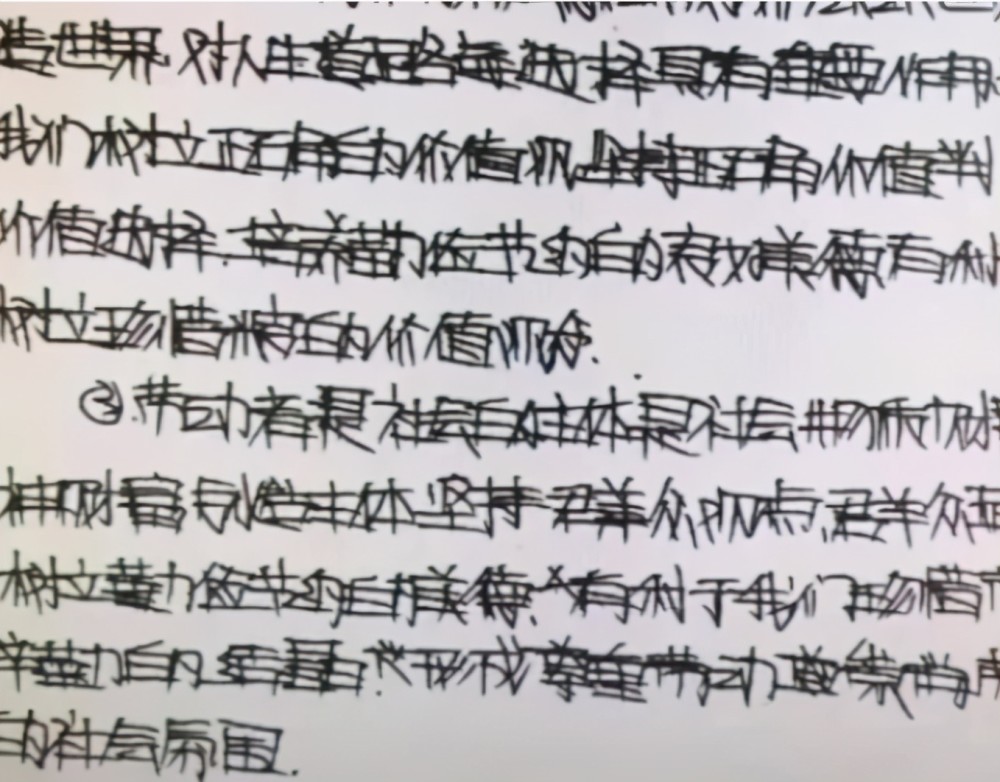 造世界.对人生道路每抉择具有重要作用
我们树立正确的价值观,坚持正确价值判
价值抉择.培养勤俭节约的良好美德有利
树立珍惜粮食的价值观念.
③.劳动者是社会的主体是社会物质财
神财富创造主体坚持群众观点,群众
树立勤俭节约的美德.有利于我们珍惜
辛勤的结晶.形成尊重劳动尊崇劳
的社会氛围.